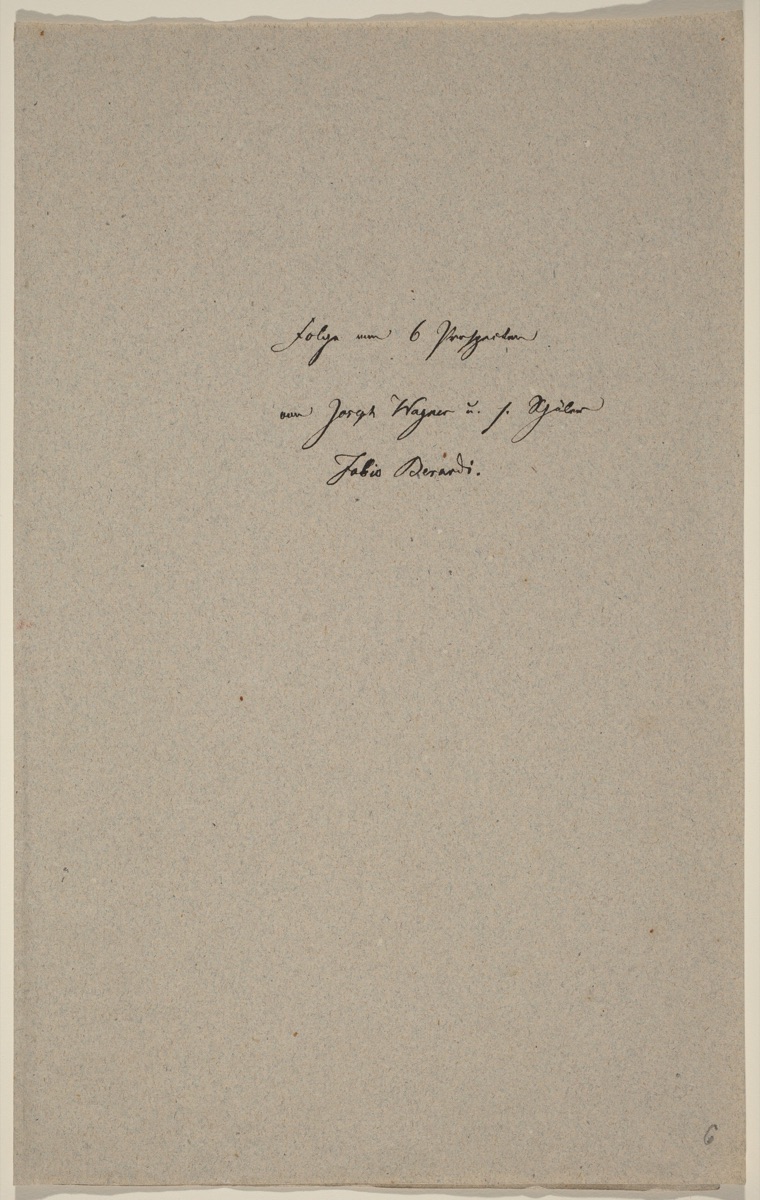 Folge von 6 Prospecten
von Joseph Wagner u. s. Schüler
Fabio Berardi.
6